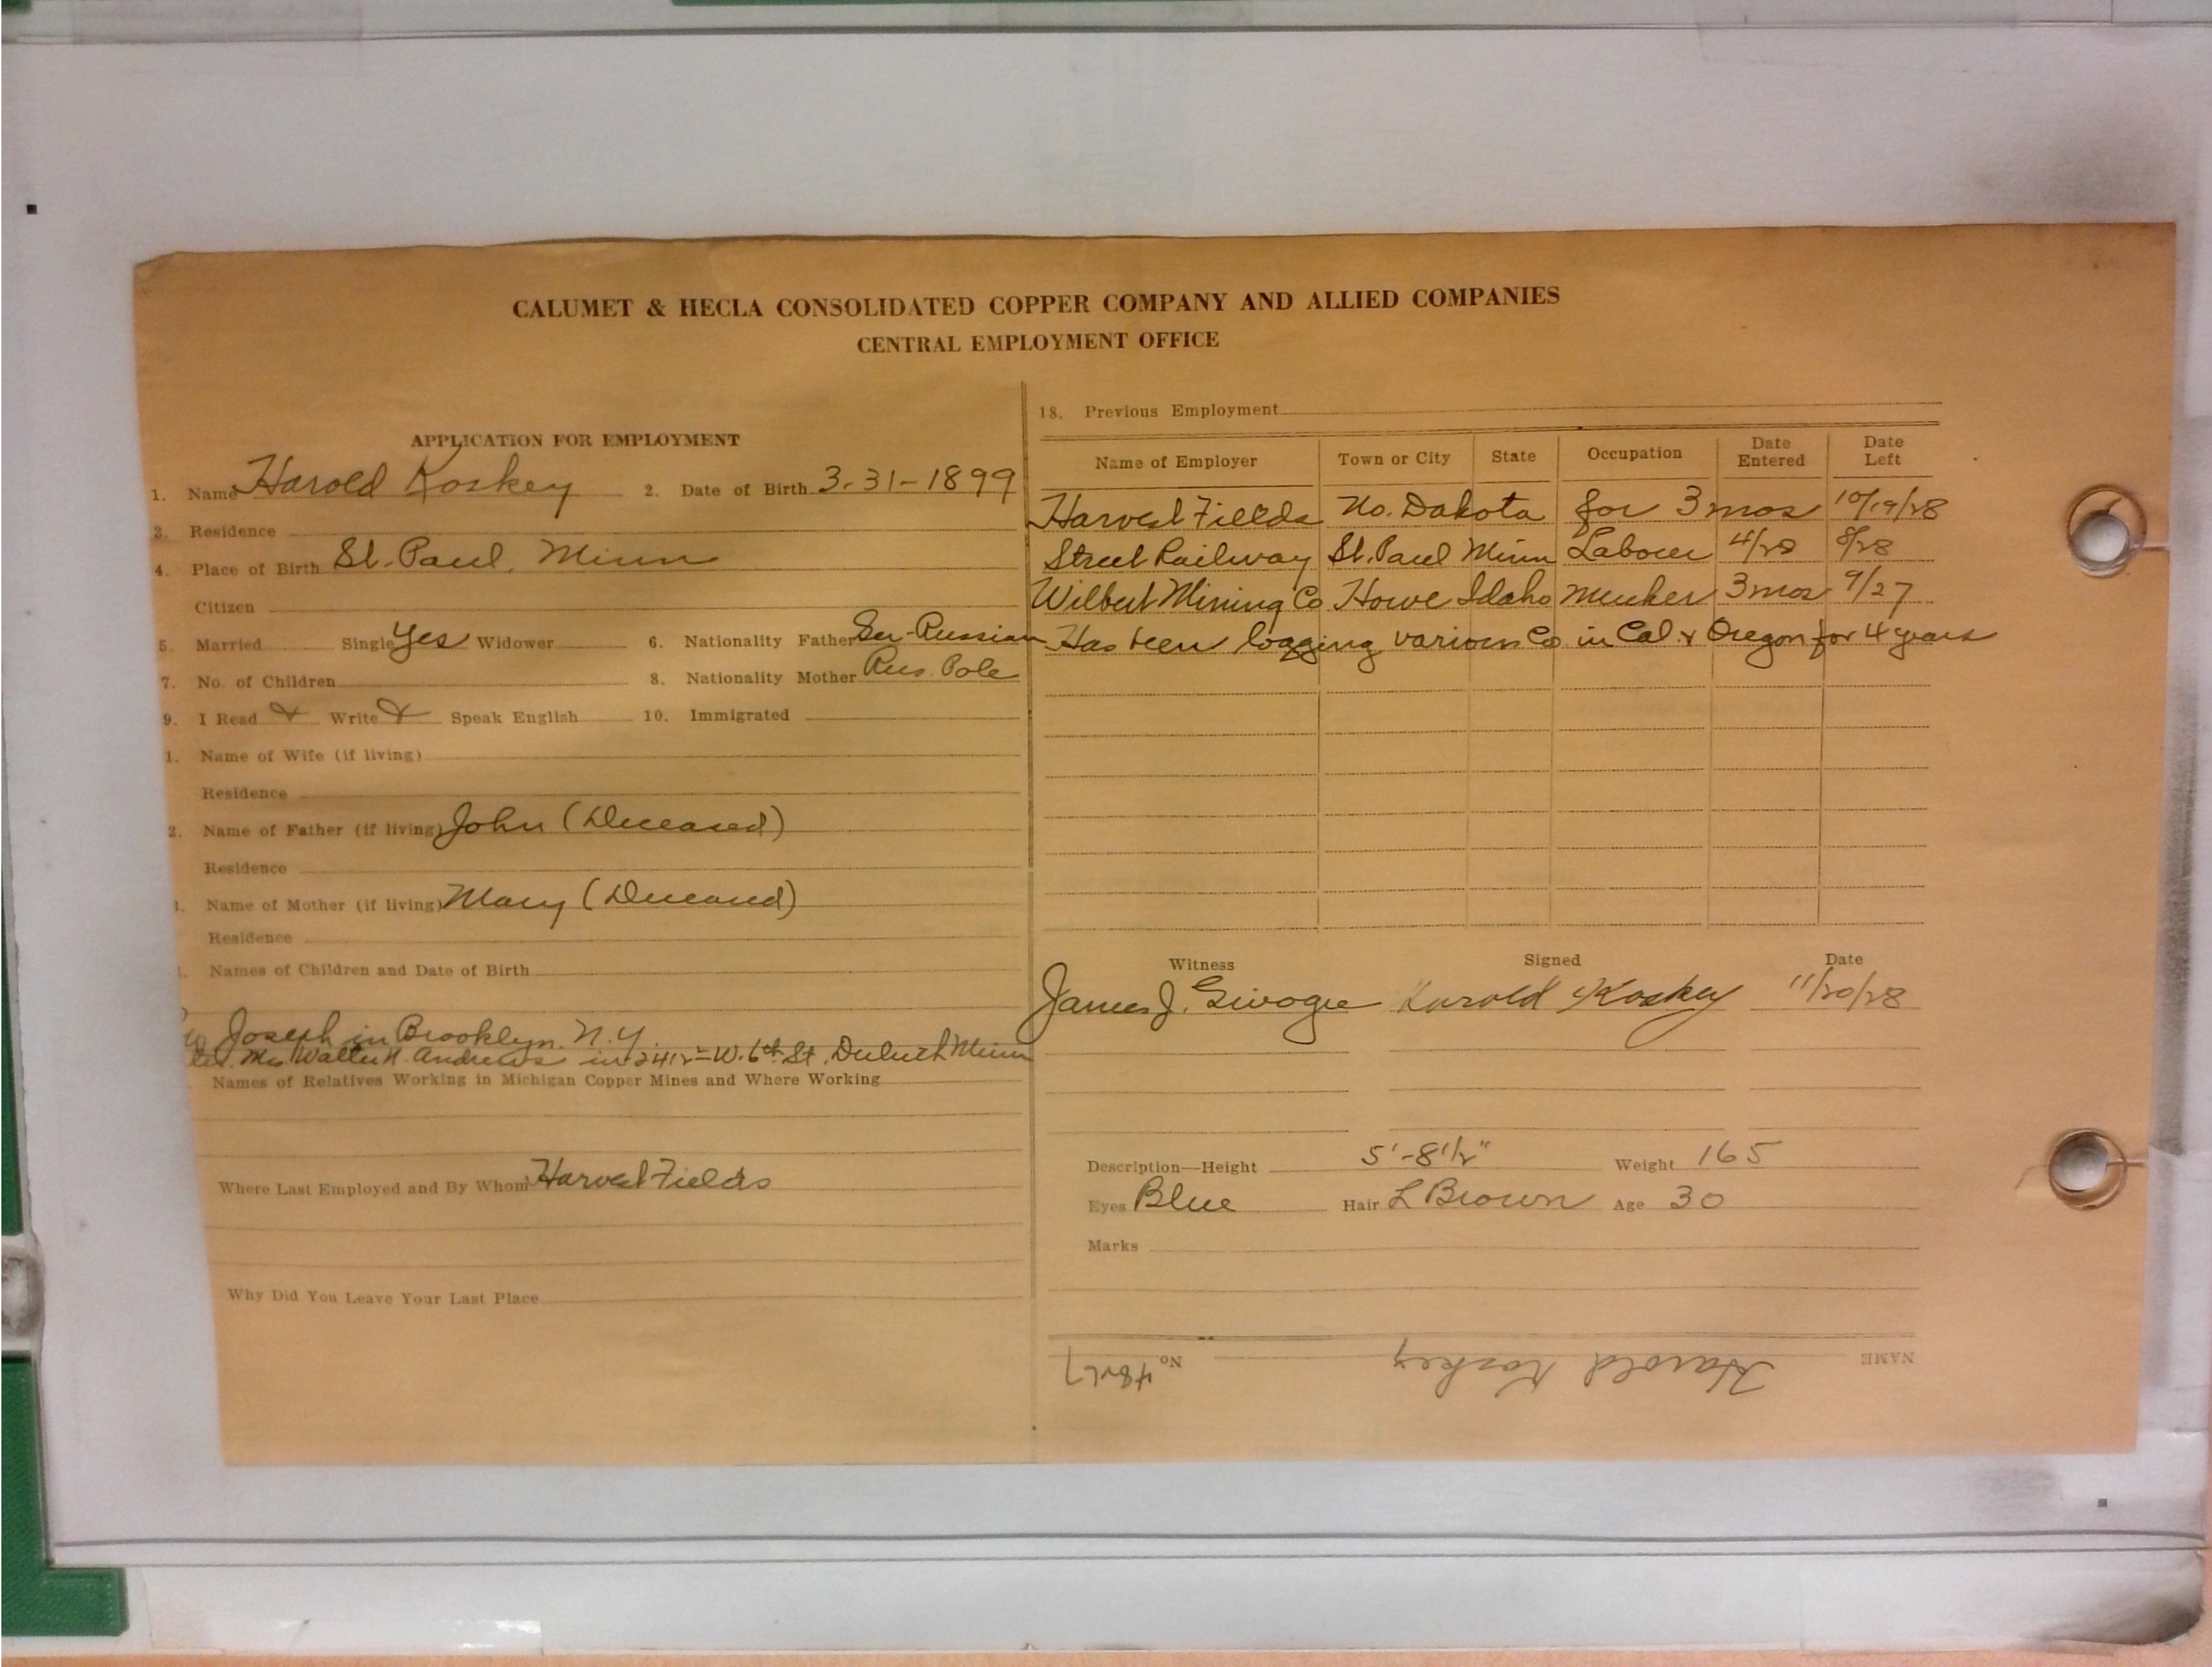 CALUMET & HECLA CONSOLIDATED COPPER COMPANY AND ALLIED COMPANIES
CENTRAL EMPLOYMENT OFFICE
APPLICATION FOR EMPLOYMENT
1. Name Harold Koskey 2. Date of Birth 3-31-1899
3. Residence
4. Place of Birth St. Paul, Minn
Citizen
5. Married Single Yes Widower 6. Nationality Father Ger-Russian
7. No. of Children 8. Nationality Mother Rus. Pole
9. I Read & Write & Speak English 10. Immigrated
1. Name of Wife (if living)
Residence
2. Name of Father (if living) John (Deceased)
Residence
Name of Mother (if living) Mary (Deceased)
Residence
Names of Children and Date of Birth
Joseph in Brooklyn. N.Y.
Mrs Walter H. Andrews in 2412 W. 6th St. Duluth Minn
Names of Relatives Working in Michigan Copper Mines and Where Working
Where Last Employed and By Whom Harvest Fields
Why Did You Leave Your Last Place
18. Previous Employment
Name of Employer Town or City State Occupation Date Entered Date Left
Harvest Fields No. Dakota for 3 mos 10/19/28
Street Railway St. Paul Minn Labour 4/28 8/28
Wilbert Mining Co Howe Idaho Mucker 3 mos 9/27
Has been logging various Co. in Cal. & Oregon for 4 years
Witness Signed Date
James J. Harold Koskey 11/20/28
Description—Height 5'-8 1/2" Weight 165
Eyes Blue Hair L Brown Age 30
Marks
NAME Harold Koskey No.